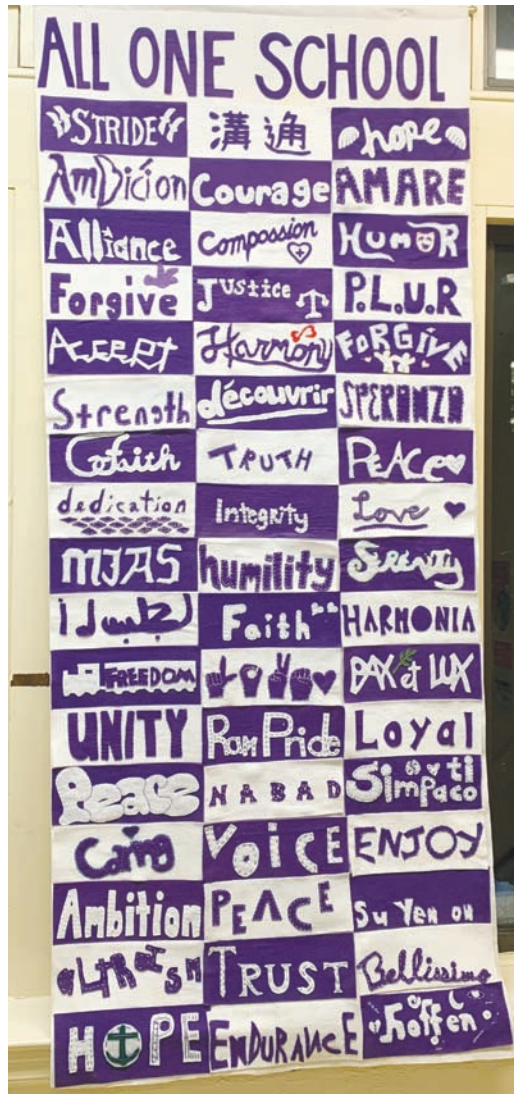 ALL ONE SCHOOL
STRIDE 溝通 hope
AmBición Courage AMARE
Alliance Compassion HUMOR
Forgive Justice P.L.U.R
Accept Harmony FORGIVE
Strength découvrir SPERANZA
Cofaith TRUTH PEACE
dedication Integrity Love
MJAS humility SERENITY
Faith HARMONIA
FREEDOM PAX et LUX
UNITY Ram Pride Loyal
Peace NABAD Simpatico
Caring VOICE ENJOY
Ambition PEACE Su Yen on
ALTRUISM TRUST Bellissimo
HOPE ENDURANCE hoffen